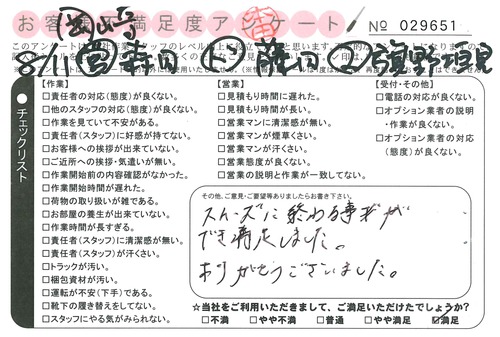 お客様満足度アンケート
No 029651
8/11
チェックリスト
【作業】
□責任者の対応(態度)が良くない。
□他のスタッフの対応(態度)が良くない。
□作業を見ていて不安がある。
□責任者(スタッフ)に好感が持てない。
□お客様への挨拶が出来ていない。
□ご近所への挨拶・気遣いが無い。
□作業開始前の内容確認がなかった。
□作業開始時間が遅れた。
□荷物の取り扱いが雑である。
□お部屋の養生が出来ていない。
□作業時間が長すぎる。
□責任者(スタッフ)に清潔感が無い。
□責任者(スタッフ)が汗くさい。
□トラックが汚い。
□梱包資材が汚い。
□運転が不安(下手)である。
□靴下の履き替えをしてない。
□スタッフにやる気がみられない。
【営業】
□見積もり時間に遅れた。
□見積もり時間が長い。
□営業マンに清潔感が無い。
□営業マンが煙草くさい。
□営業マンが汗くさい。
□営業態度が良くない。
□営業の説明と作業が一致してない。
【受付・その他】
□電話の対応が良くない。
□オプション業者の説明
・作業が良くない。
□オプション業者の対応
(態度)が良くない。
その他、ご意見・ご要望等ありましたらお書き下さい。
スムーズに終わる事が
でき満足しました。
ありがとうございました。
☆当社をご利用いただきまして、ご満足いただけたでしょうか?
□不満 □やや不満 □普通 □やや満足 ☑満足